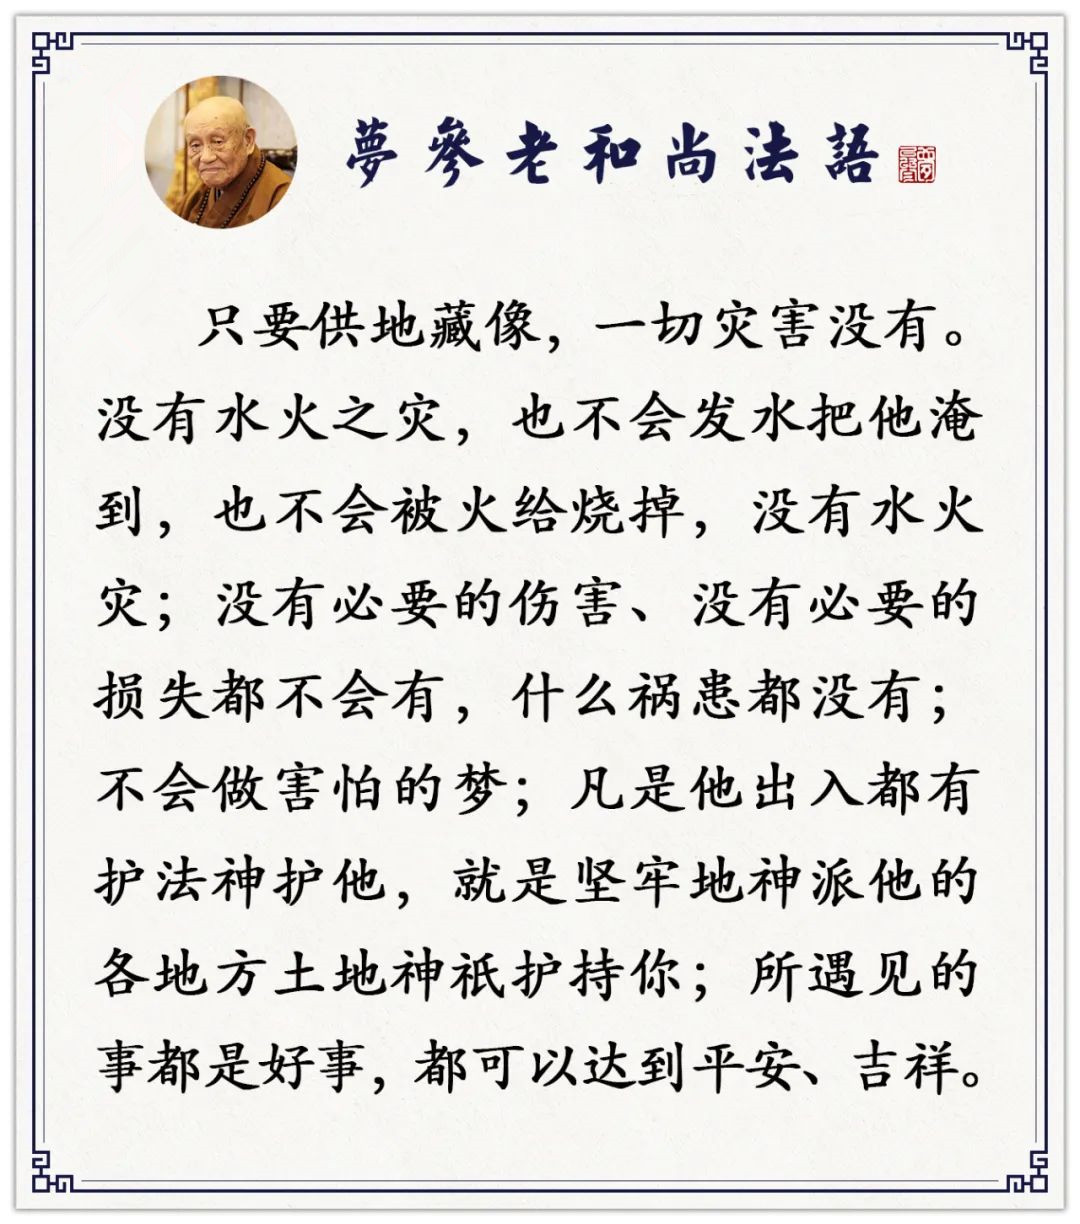 夢參老和尚法語
只要供地藏像，一切灾害没有。
没有水火之灾，也不会发水把他淹
到，也不会被火给烧掉，没有水火
灾；没有必要的伤害、没有必要的
损失都不会有，什么祸患都没有；
不会做害怕的梦；凡是他出入都有
护法神护他，就是坚牢地神派他的
各地方土地神祇护持你；所遇见的
事都是好事，都可以达到平安、吉祥。